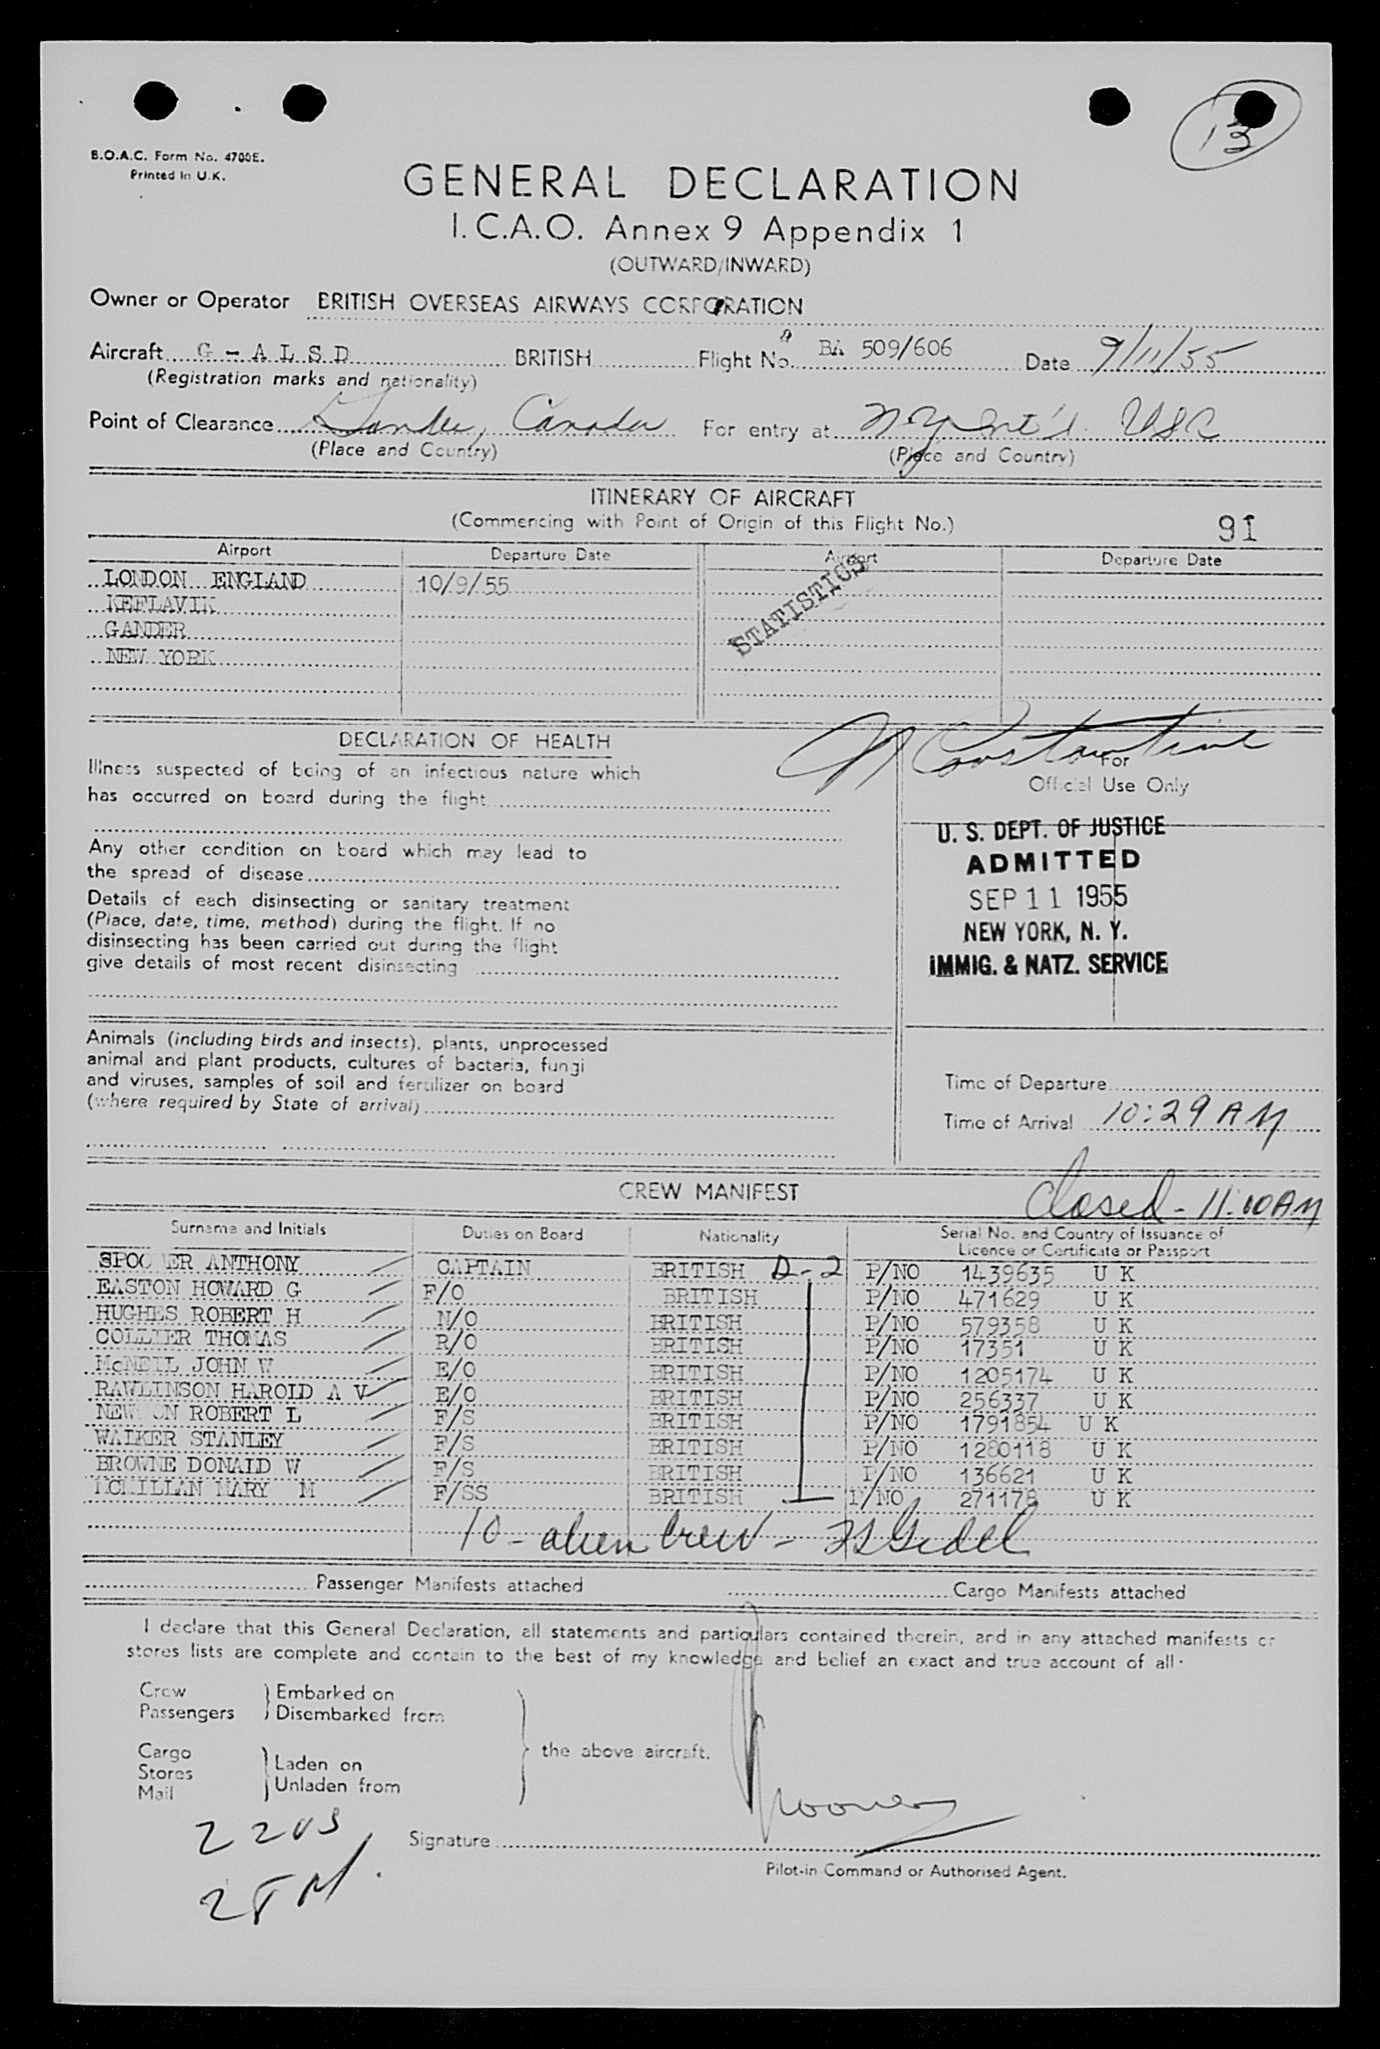 13
B.O.A.C. Form No. 4700E.
Printed in U.K.
GENERAL DECLARATION
I.C.A.O. Annex 9 Appendix 1
(OUTWARD/INWARD)
Owner or Operator BRITISH OVERSEAS AIRWAYS CORPORATION
Aircraft G - A L S D BRITISH Flight No. BA 509/606 Date 9/11/55
(Registration marks and nationality)
Point of Clearance Gander, Canada For entry at NY Int'l. USA
(Place and Country) (Place and Country)
ITINERARY OF AIRCRAFT
(Commencing with Point of Origin of this Flight No.) 91
Airport Departure Date Airport Departure Date
LONDON ENGLAND 10/9/55
KEFLAVIK
GANDER
NEW YORK
STATISTICS
DECLARATION OF HEALTH
Illness suspected of being of an infectious nature which
has occurred on board during the flight
Any other condition on board which may lead to
the spread of disease
Details of each disinsecting or sanitary treatment
(Place, date, time, method) during the flight. If no
disinsecting has been carried out during the flight
give details of most recent disinsecting
Constantine
For
Official Use Only
U. S. DEPT. OF JUSTICE
ADMITTED
SEP 11 1955
NEW YORK, N. Y.
IMMIG. & NATZ. SERVICE
Animals (including birds and insects), plants, unprocessed
animal and plant products, cultures of bacteria, fungi
and viruses, samples of soil and fertilizer on board
(where required by State of arrival)
Time of Departure
Time of Arrival 10:29 AM
Closed - 11:00 AM
CREW MANIFEST
Surname and Initials Duties on Board Nationality Serial No. and Country of Issuance of
Licence or Certificate or Passport
SPOONER ANTHONY CAPTAIN BRITISH D-2 P/NO 1439635 U K
EASTON HOWARD G F/O BRITISH P/NO 471629 U K
HUGHES ROBERT H N/O BRITISH P/NO 579358 U K
COLLIER THOMAS R/O BRITISH P/NO 17351 U K
McNEIL JOHN W E/O BRITISH P/NO 1205174 U K
RAWLINSON HAROLD A V E/O BRITISH P/NO 256337 U K
NEWTON ROBERT L F/S BRITISH P/NO 1791854 U K
WALKER STANLEY F/S BRITISH P/NO 1280118 U K
BROWNE DONALD W F/S BRITISH P/NO 136621 U K
MCMILLAN MARY M F/SS BRITISH P/NO 271178 U K
10 - alien crew -
Passenger Manifests attached Cargo Manifests attached
I declare that this General Declaration, all statements and particulars contained therein, and in any attached manifests or
stores lists are complete and contain to the best of my knowledge and belief an exact and true account of all
Crew Embarked on
Passengers Disembarked from
the above aircraft.
Cargo Laden on
Stores
Mail Unladen from
Spooner
Signature
Pilot-in-Command or Authorised Agent.